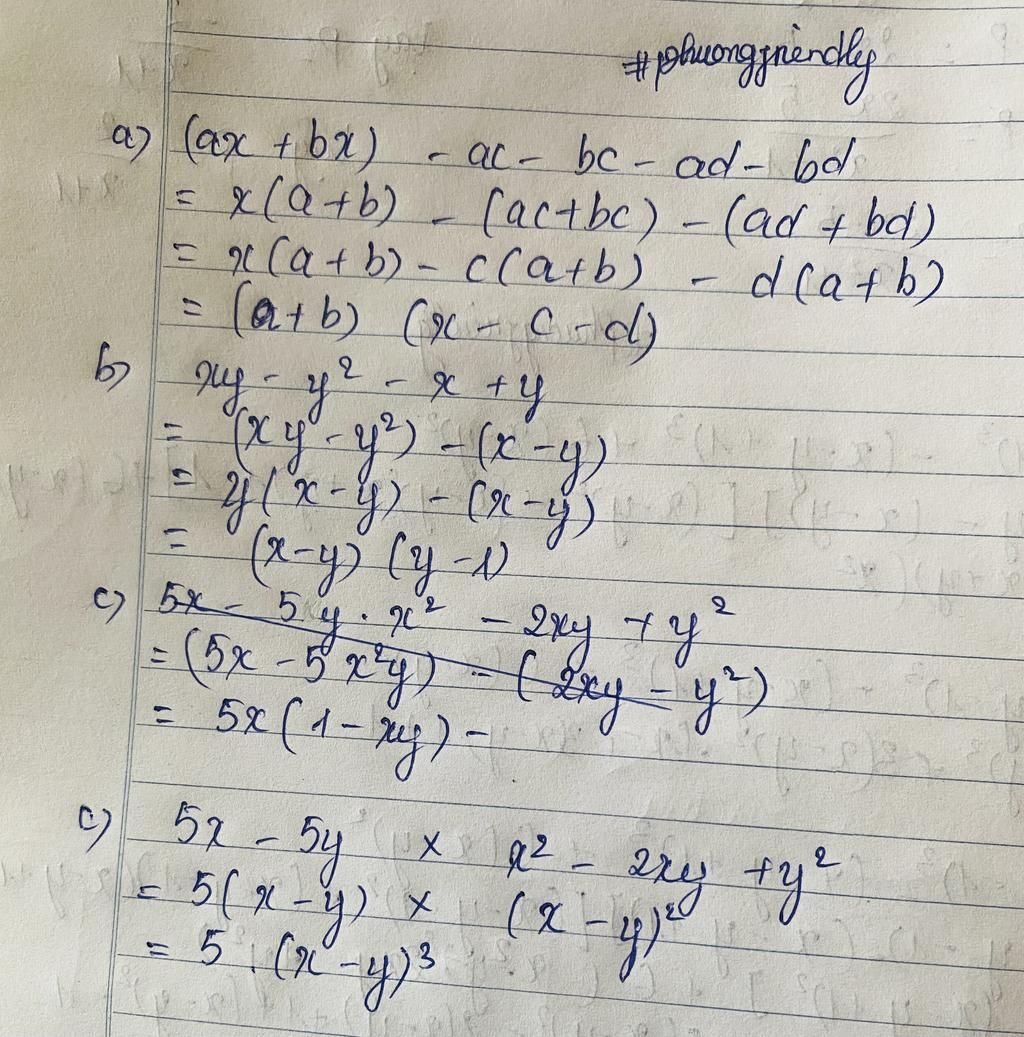 #phuongfriendly
a) (ax + bx) - ac - bc - ad - bd
= x(a+b) - (ac+bc) - (ad + bd)
= x(a+b) - c(a+b) - d(a+b)
= (a+b) (x - c - d)
b) xy - y² - x + y
= (xy - y²) - (x - y)
= y(x-y) - (x-y)
= (x-y) (y-1)
c) 5x - 5y . x² - 2xy + y²
= (5x - 5x²y) - (2xy - y²)
= 5x(1 - xy) -
c) 5x - 5y × x² - 2xy + y²
= 5(x-y) × (x-y)²
= 5 . (x-y)³